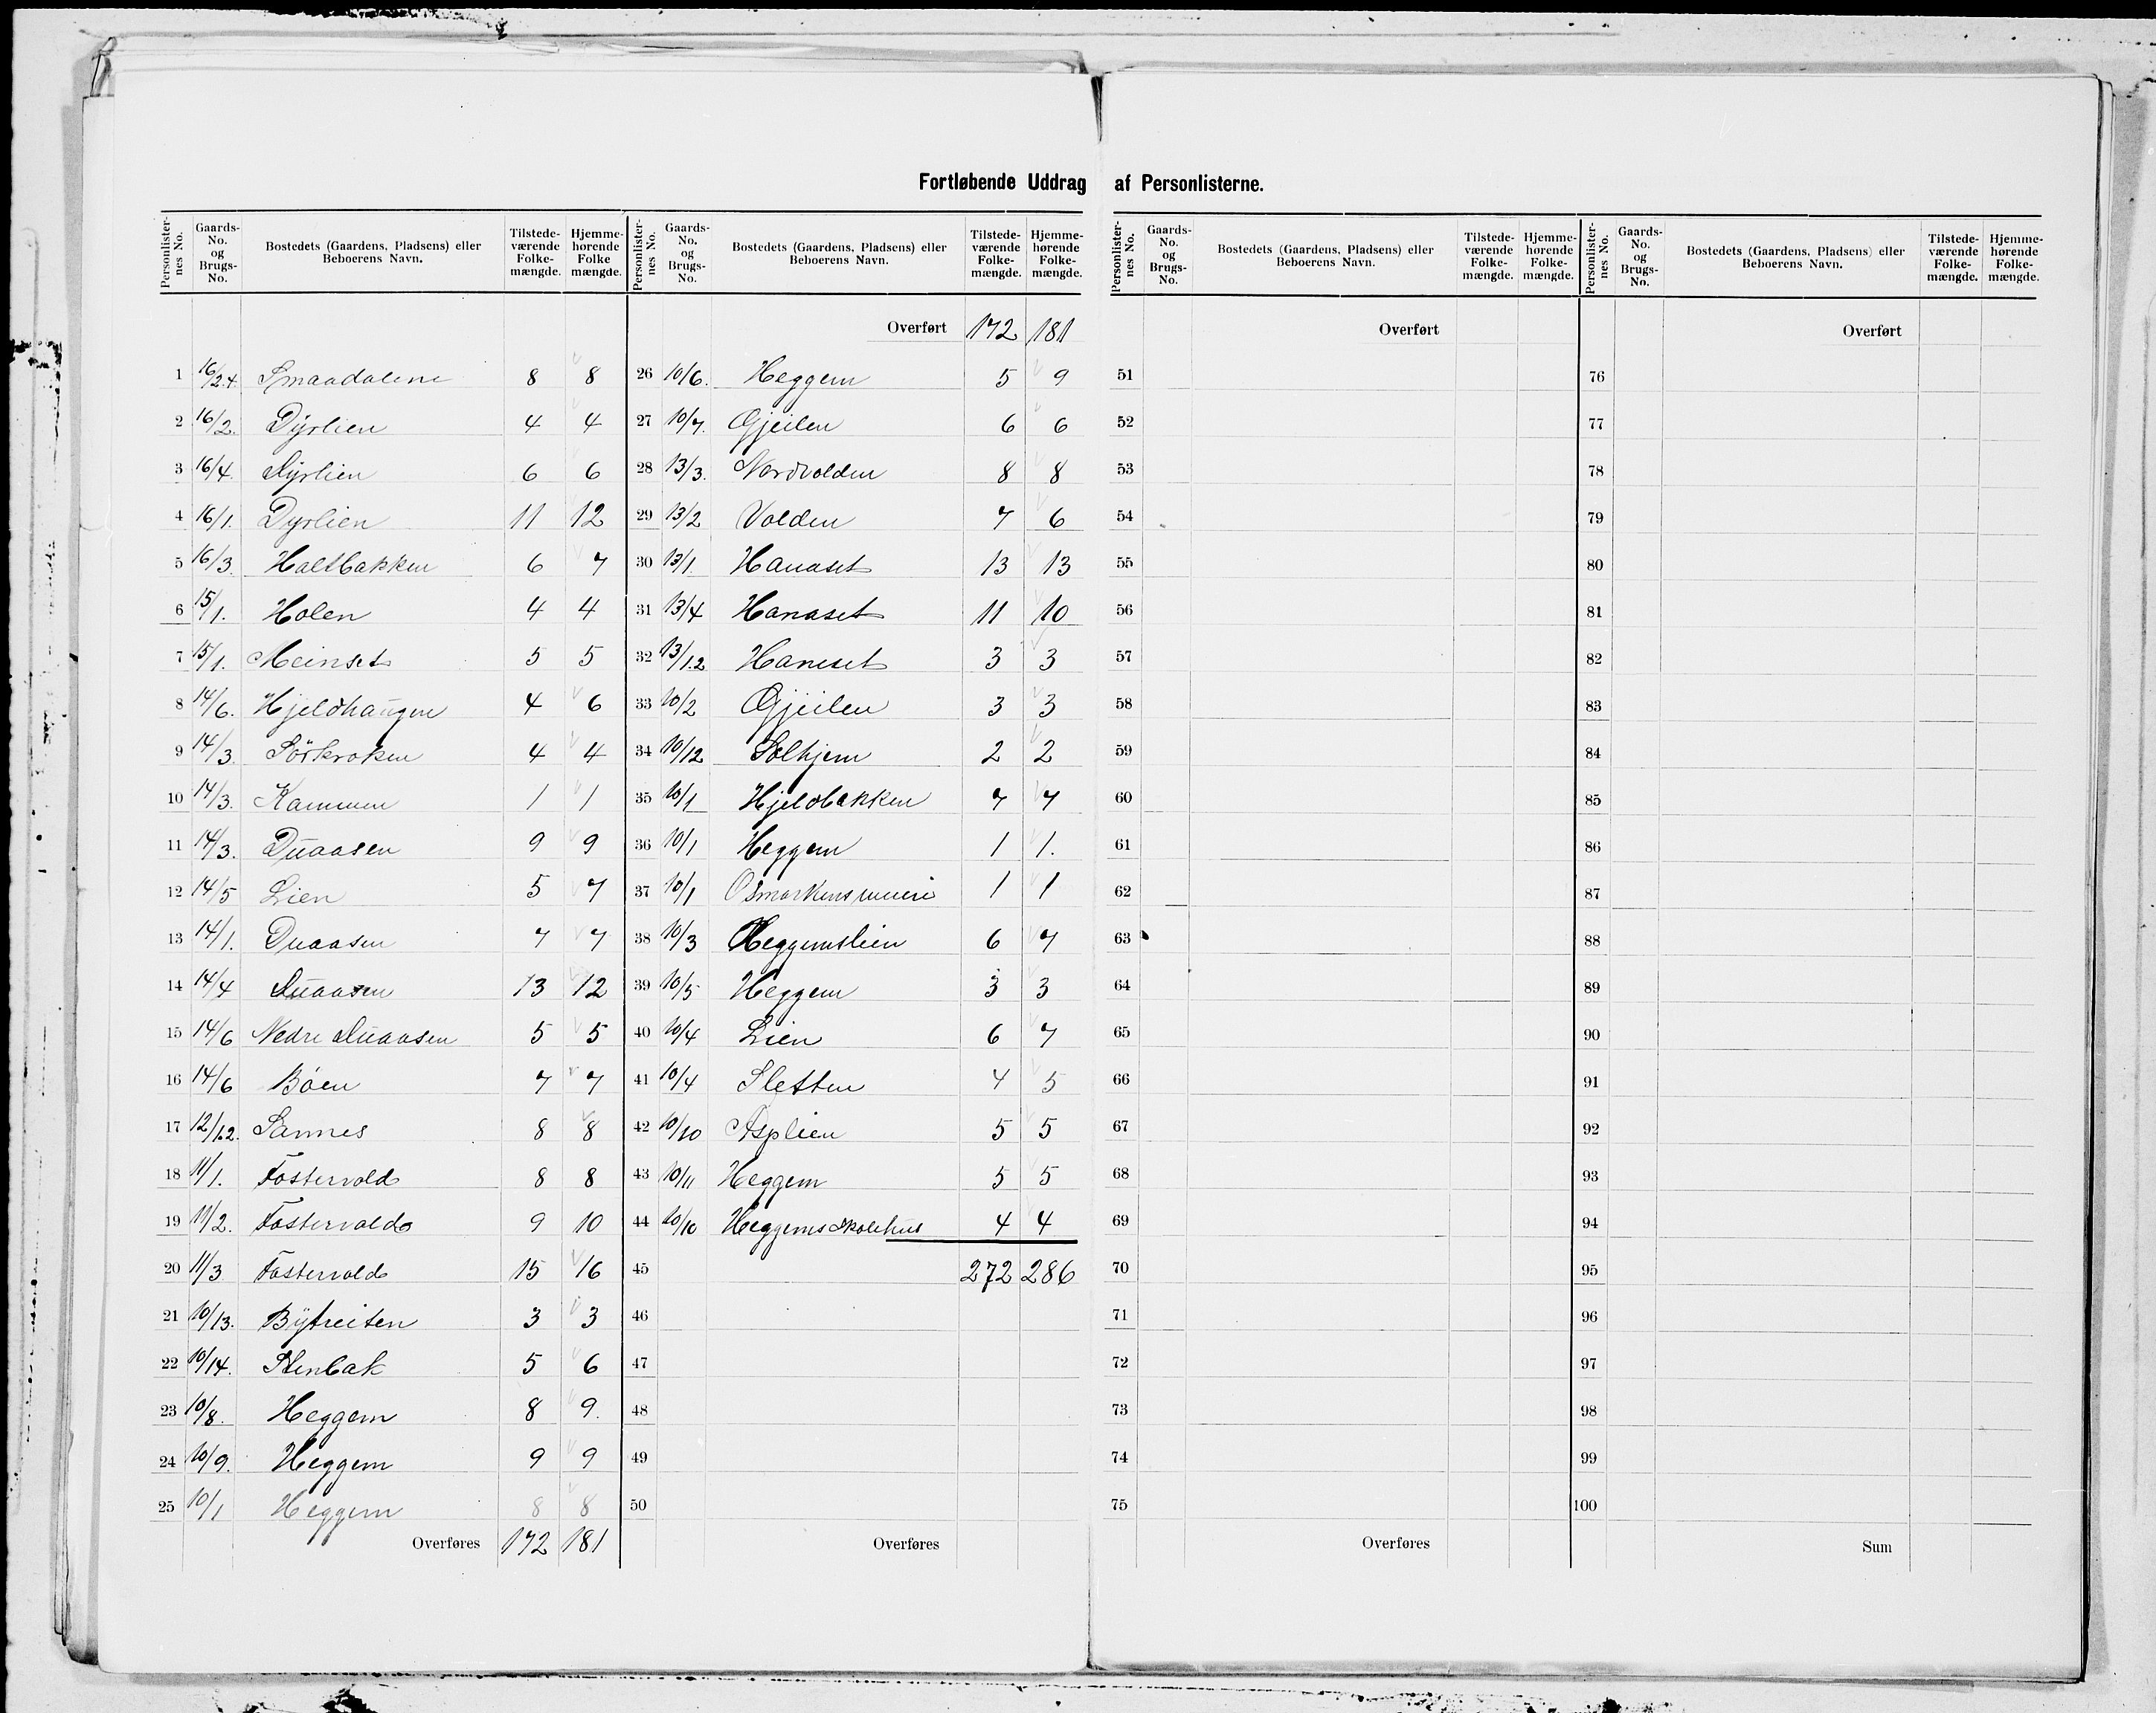 Fortløbende Uddrag af Personlisterne.
Personlisternes No. Gaards-No. og Brugs-No. Bostedets (Gaardens, Pladsens) eller Beboerens Navn. Tilstedeværende Folkemængde. Hjemmehørende Folkemængde.
1 16/2.4. Smaadalene 8 8
2 16/2. Dyrlien 4 4
3 16/4. Dyrlien 6 6
4 16/1. Dyrlien 11 12
5 16/3. Haltbakken 6 7
6 15/1. Holen 4 4
7 15/1. Meinset 5 5
8 14/6. Hjeldhaugen 4 6
9 14/3. Sörkroken 4 4
10 14/3. Kammen 1 1
11 14/3. Duaasen 9 9
12 14/5 Lien 5 7
13 14/1. Duaasen 7 7
14 14/4 Duaasen 13 12
15 14/6 Nedre Duaasen 5 5
16 14/6 Böen 7 7
17 12/1.2. Sannes 8 8
18 11/1. Fostervold 8 8
19 11/2. Fostervold 9 10
20 11/3 Fostervold 15 16
21 10/13. Bytreiten 3 3
22 10/14. Stenbak 5 6
23 10/8. Heggem 8 9.
24 10/9. Heggem 9 9
25 10/1 Heggem 8 8
Overføres 172 181
Personlisternes No. Gaards-No. og Brugs-No. Bostedets (Gaardens, Pladsens) eller Beboerens Navn. Tilstedeværende Folkemængde. Hjemmehørende Folkemængde.
Overført 172 181
26 10/6. Heggem 5 9
27 10/7. Gjeilen 6 6
28 13/3. Nordvolden 8 8
29 13/2 Volden 7 6
30 13/1. Hanaset 13 13
31 13/4 Hanaset 11 10
32 13/1.2 Haneset 3 3
33 10/2 Gjeilen 3 3
34 10/12 Solhjem 2 2
35 10/1 Hjeldbakken 7 7
36 10/1 Heggem 1 1.
37 10/1 Osmarkens meieri 1 1
38 10/3 Heggemslien 6 7
39 10/5 Heggem 3 3
40 10/4 Lien 6 7
41 10/4 Sletten 4 5
42 10/10 Asplien 5 5
43 10/11 Heggem 5 5
44 10/10 Heggems Skolehus 4 4
45 272 286
46
47
48
49
50
Overføres
Personlisternes No. Gaards-No. og Brugs-No. Bostedets (Gaardens, Pladsens) eller Beboerens Navn. Tilstedeværende Folkemængde. Hjemmehørende Folkemængde.
Overført
51
52
53
54
55
56
57
58
59
60
61
62
63
64
65
66
67
68
69
70
71
72
73
74
75
Overføres
Personlisternes No. Gaards-No. og Brugs-No. Bostedets (Gaardens, Pladsens) eller Beboerens Navn. Tilstedeværende Folkemængde. Hjemmehørende Folkemængde.
Overført
76
77
78
79
80
81
82
83
84
85
86
87
88
89
90
91
92
93
94
95
96
97
98
99
100
Sum